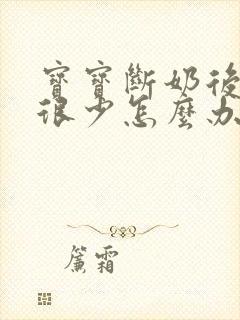 寶寶斷奶後
很少怎麼办
簾霜